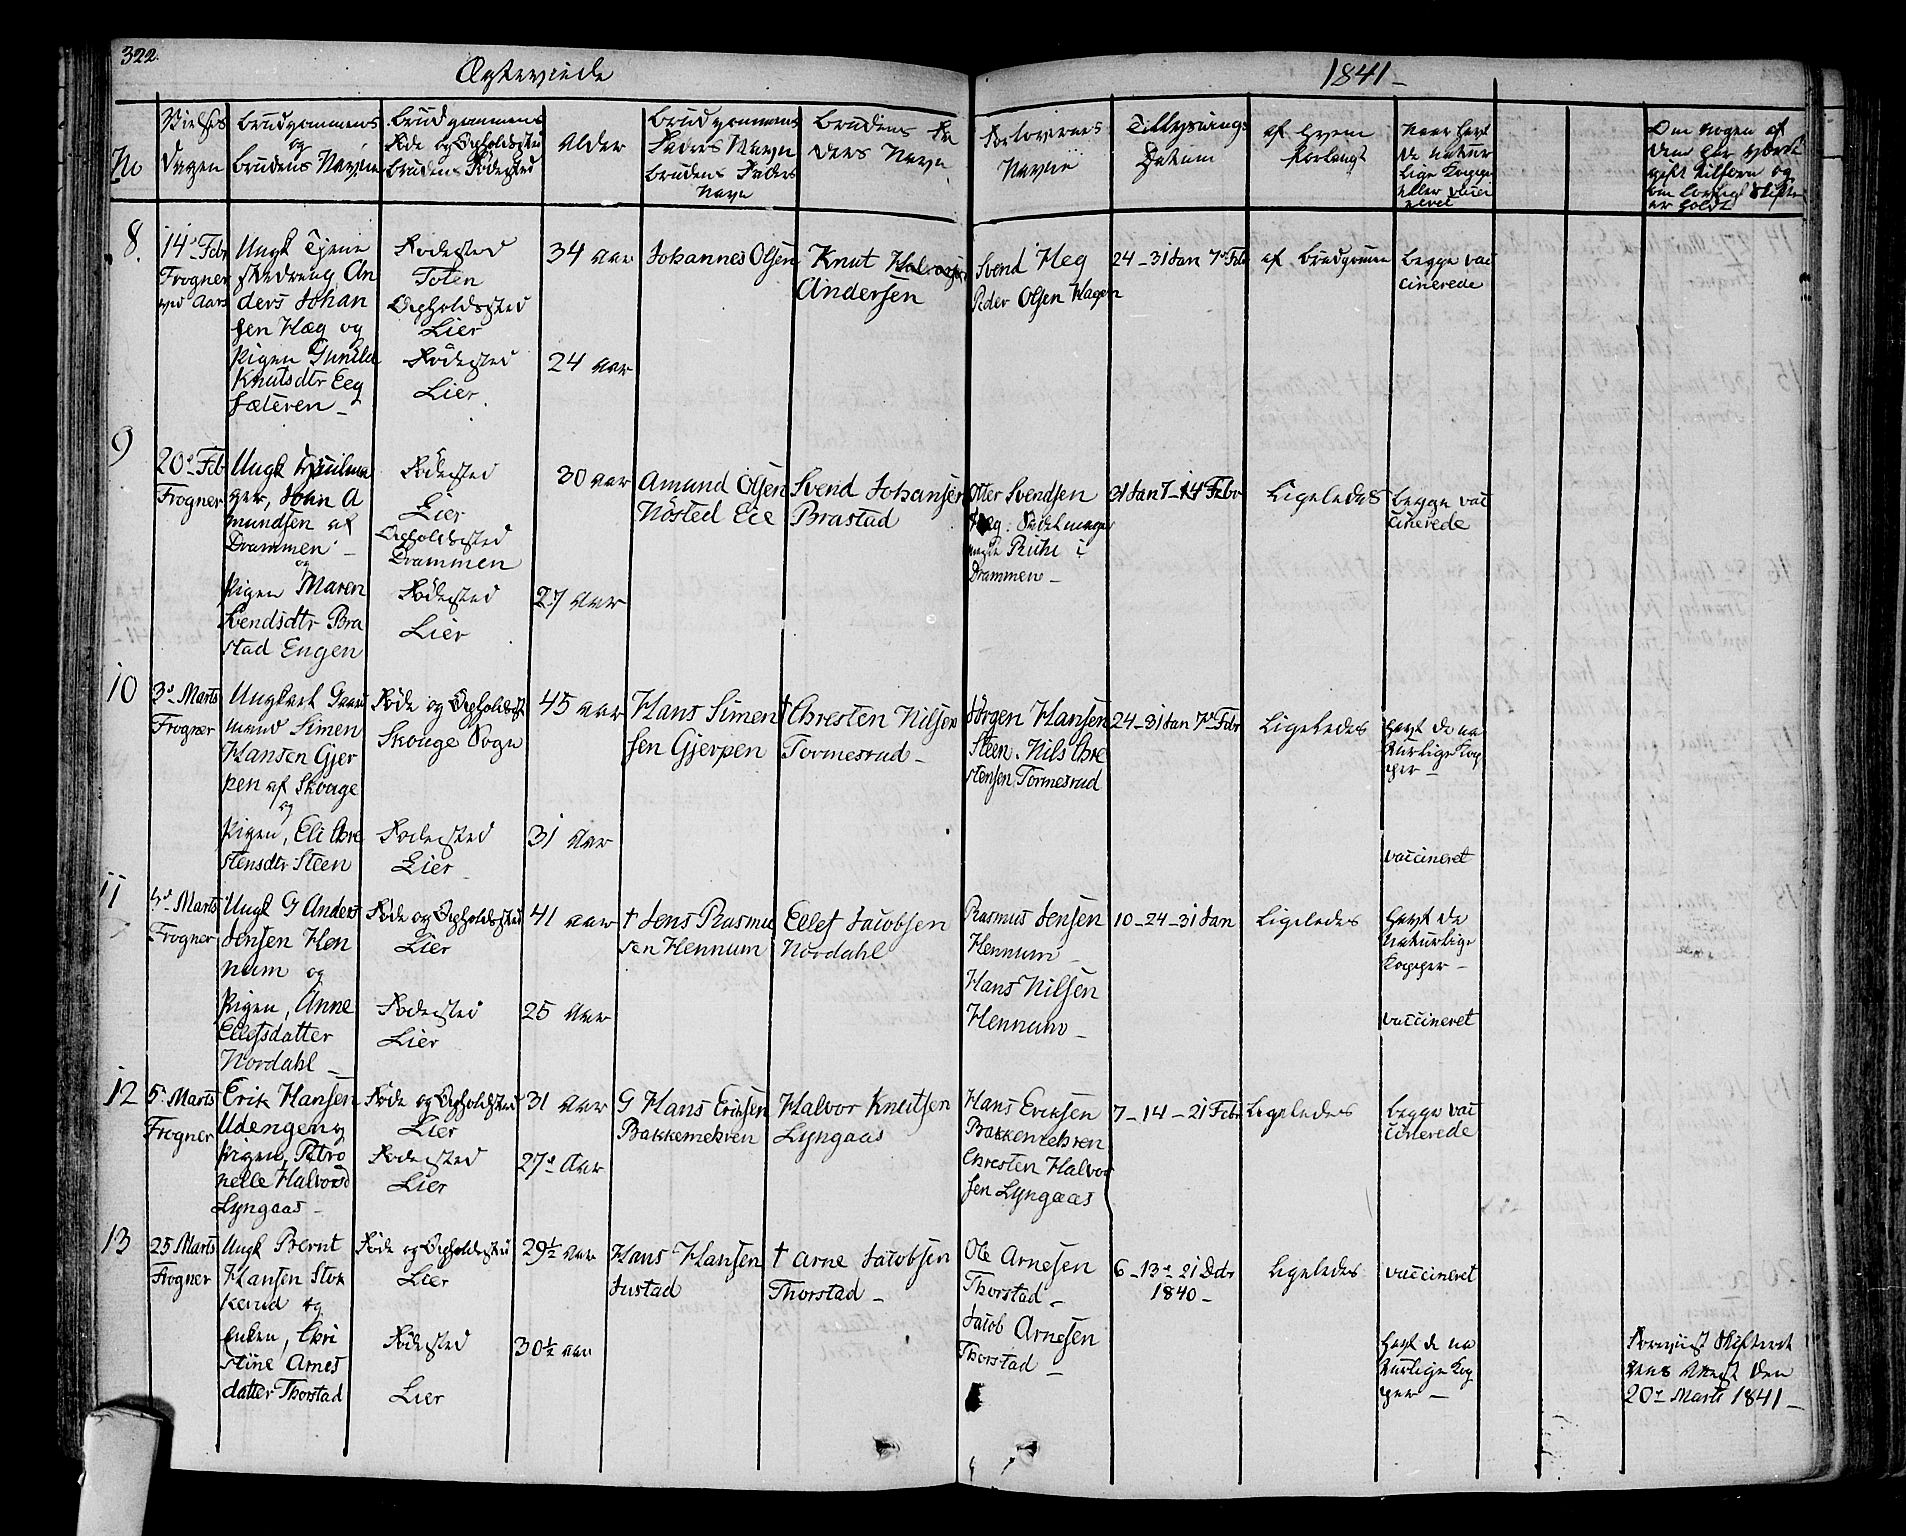 322.
Ægteviede
1841 –
No
Vielses
Dagen
Brudgommens
og
Brudens Navne
Brudgommens
Føde og Opholdssted
Brudens Fødested
Alder
Brudgommens
Faders Navn
Brudens Faders
Navn
Brudens Fa
ders Navn
Forlovernes
Navne
Tillysnings
Datum
af hvem
forlangt
Naar havt
de natur
lige Kopper
eller vacci
neret
Om nogen af
dem har været
gift tilforn og
om lovligt Skifte
er holdt
8.
14de Febr
Frogner
ved Aars
Ungk Tjene
stedreng An
ders Johan
sen Hæg og
Pigen Gunild
Knutsdtr Eeg
sæteren –
Fødested
Toten
Opholdssted
Lier
Fødested
Lier
34 aar
24 aar
Johannes Olsen
Knut
Andersen
Svend Heg
Peder Olsen Hagen
24 – 31 Jan 7de Feb
af Brudgomen
begge vac
cinerede
9
20de Feb
Frogner
Ungk
ger, John A
mundsen af
Drammen –
og
Pigen Maren
Svendsdtr Bra
stad Engen
Fødested
Lier
Opholdssted
Drammen
Fødested
Lier
30 aar
27 Aar
Amund Olsen
Nøsted Eie
Svend Johansen
Brastad
Otter Svendsen
i
Drammen –
31 Jan 7 – 14 Febr
Ligeledes
begge vac
cinerede
10
3de Marts
Frogner
Ungkarl Gaar
mand Simen
Hansen Gjer
pen af Skouge
og
Pigen, Eli Chre
stensdtr Steen
Føde og Opholdsst
Skouge Sogn
Fødested
Lier
45 aar
31 Aar
Hans Simen
sen Gjerpen
† Chresten Nilsen
Tormesrud –
Jørgen Hansen
Steen. Nils Chre
stensen Tormesrud
24 – 31 Jan 7de Febr
Ligeledes
havt de na
turlige Kop
per –
vaccineret
11
4de Marts
Frogner
Ungk G Anders
Jensen Hen
num og
Pigen, Anne
Ellefsdatter
Nordahl –
Føde og Opholdssted
Lier
Fødested
Lier
41 aar
25 Aar
† Jens Rasmu
sen Hennum
Ellef Jacobsen
Nordahl
Rasmus Jensen
Hennum –
Hans Nilsen
Hennum –
10 – 24 – 31 Jan
Ligeledes
havt de
naturlige
Kopper –
vaccineret
12
5. Marts
Frogner
Erik Hansen
Udengen og
Pigen, Petro
nelle Halvorsd
Lyngaas –
Føde og Opholdssted
Lier
Fødested
Lier
31 Aar
27de Aar
G Hans Eriksen
Bakkemehren
Halvor Knutsen
Lyngaas
Hans Eriksen
Bakkemehren
Chresten Halvor
sen Lyngaas
7 – 14 – 21 Febr
Ligeledes
begge vac
cinerede
13
25 Marts
Frogner
Ungk Bernt
Hansen Stok
kerud og
Enken, Chri
stine Arnes
datter Thorstad
Føde og Opholdssted
Lier
Fødested
Lier
29½ aar
30½ aar
Hans Hansen
Justad
† Arne Jacobsen
Thorstad –
Ole Arnesen
Thorstad –
Jacob Arnesen
Thorstad –
6 – 13de – 21 Dcbr
1840 –
Ligeledes
vaccineret
havt de na
turlige Kop
per –
Forevist Skifteret
tens Attest den
20de Marts 1841 –